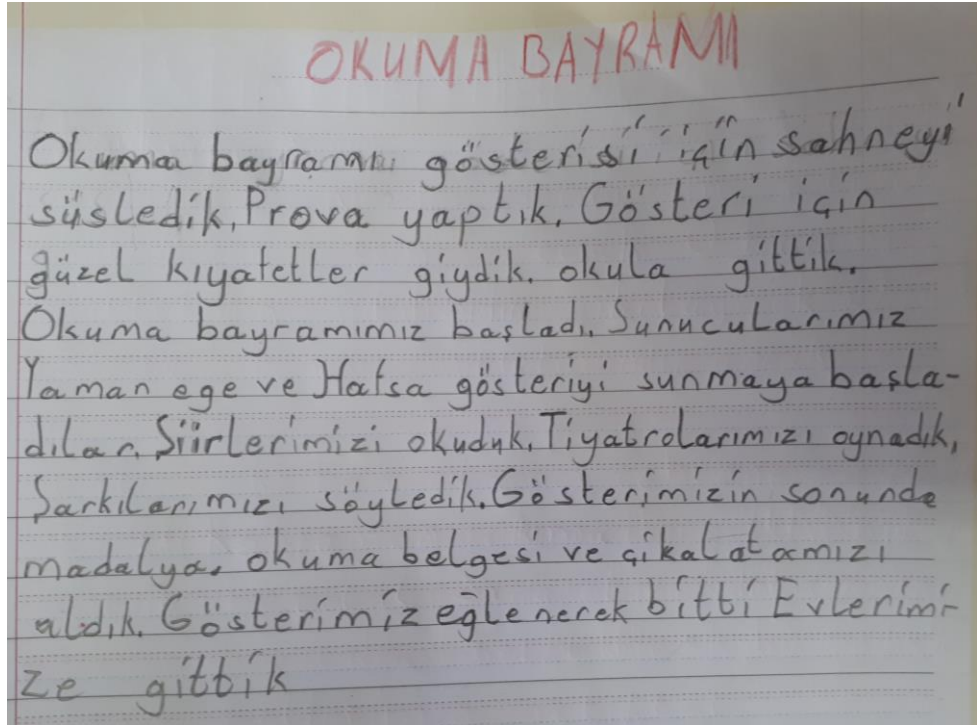 OKUMA BAYRAMI
Okuma bayramı gösterisi için sahneyi
süsledik. Prova yaptık. Gösteri için
güzel kıyafetler giydik. okula gittik.
Okuma bayramımız başladı. Sunucularımız
Yaman ege ve Hafsa gösteriyi sunmaya başla-
dılar. Şiirlerimizi okuduk. Tiyatrolarımızı oynadık,
Şarkılarımızı söyledik. Gösterimizin sonunda
madalya, okuma belgesi ve çikalatamızı
aldık. Gösterimiz eğlenerek bitti Evlerimi-
ze gittik